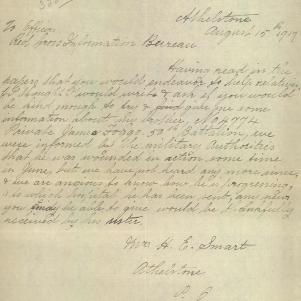 Athelstone
August 15th 1917
To Officer
Red Cross Information Bureau
Having read in the
papers that you would endeavor to help relatives
I thought I would write & ask if you would
be kind enough to try & give me some
information about my brother, No 4774
Private James 50th Battalion, we
were informed by the military Authorities
that he was wounded in action some time
in June, but we have not heard any more since,
& we are anxious to know how he is progressing,
& to which Hospital he has been sent, any news
you may be able to give would be thankfully
received by his sister.
Mrs H. E. Smart
Athelstone